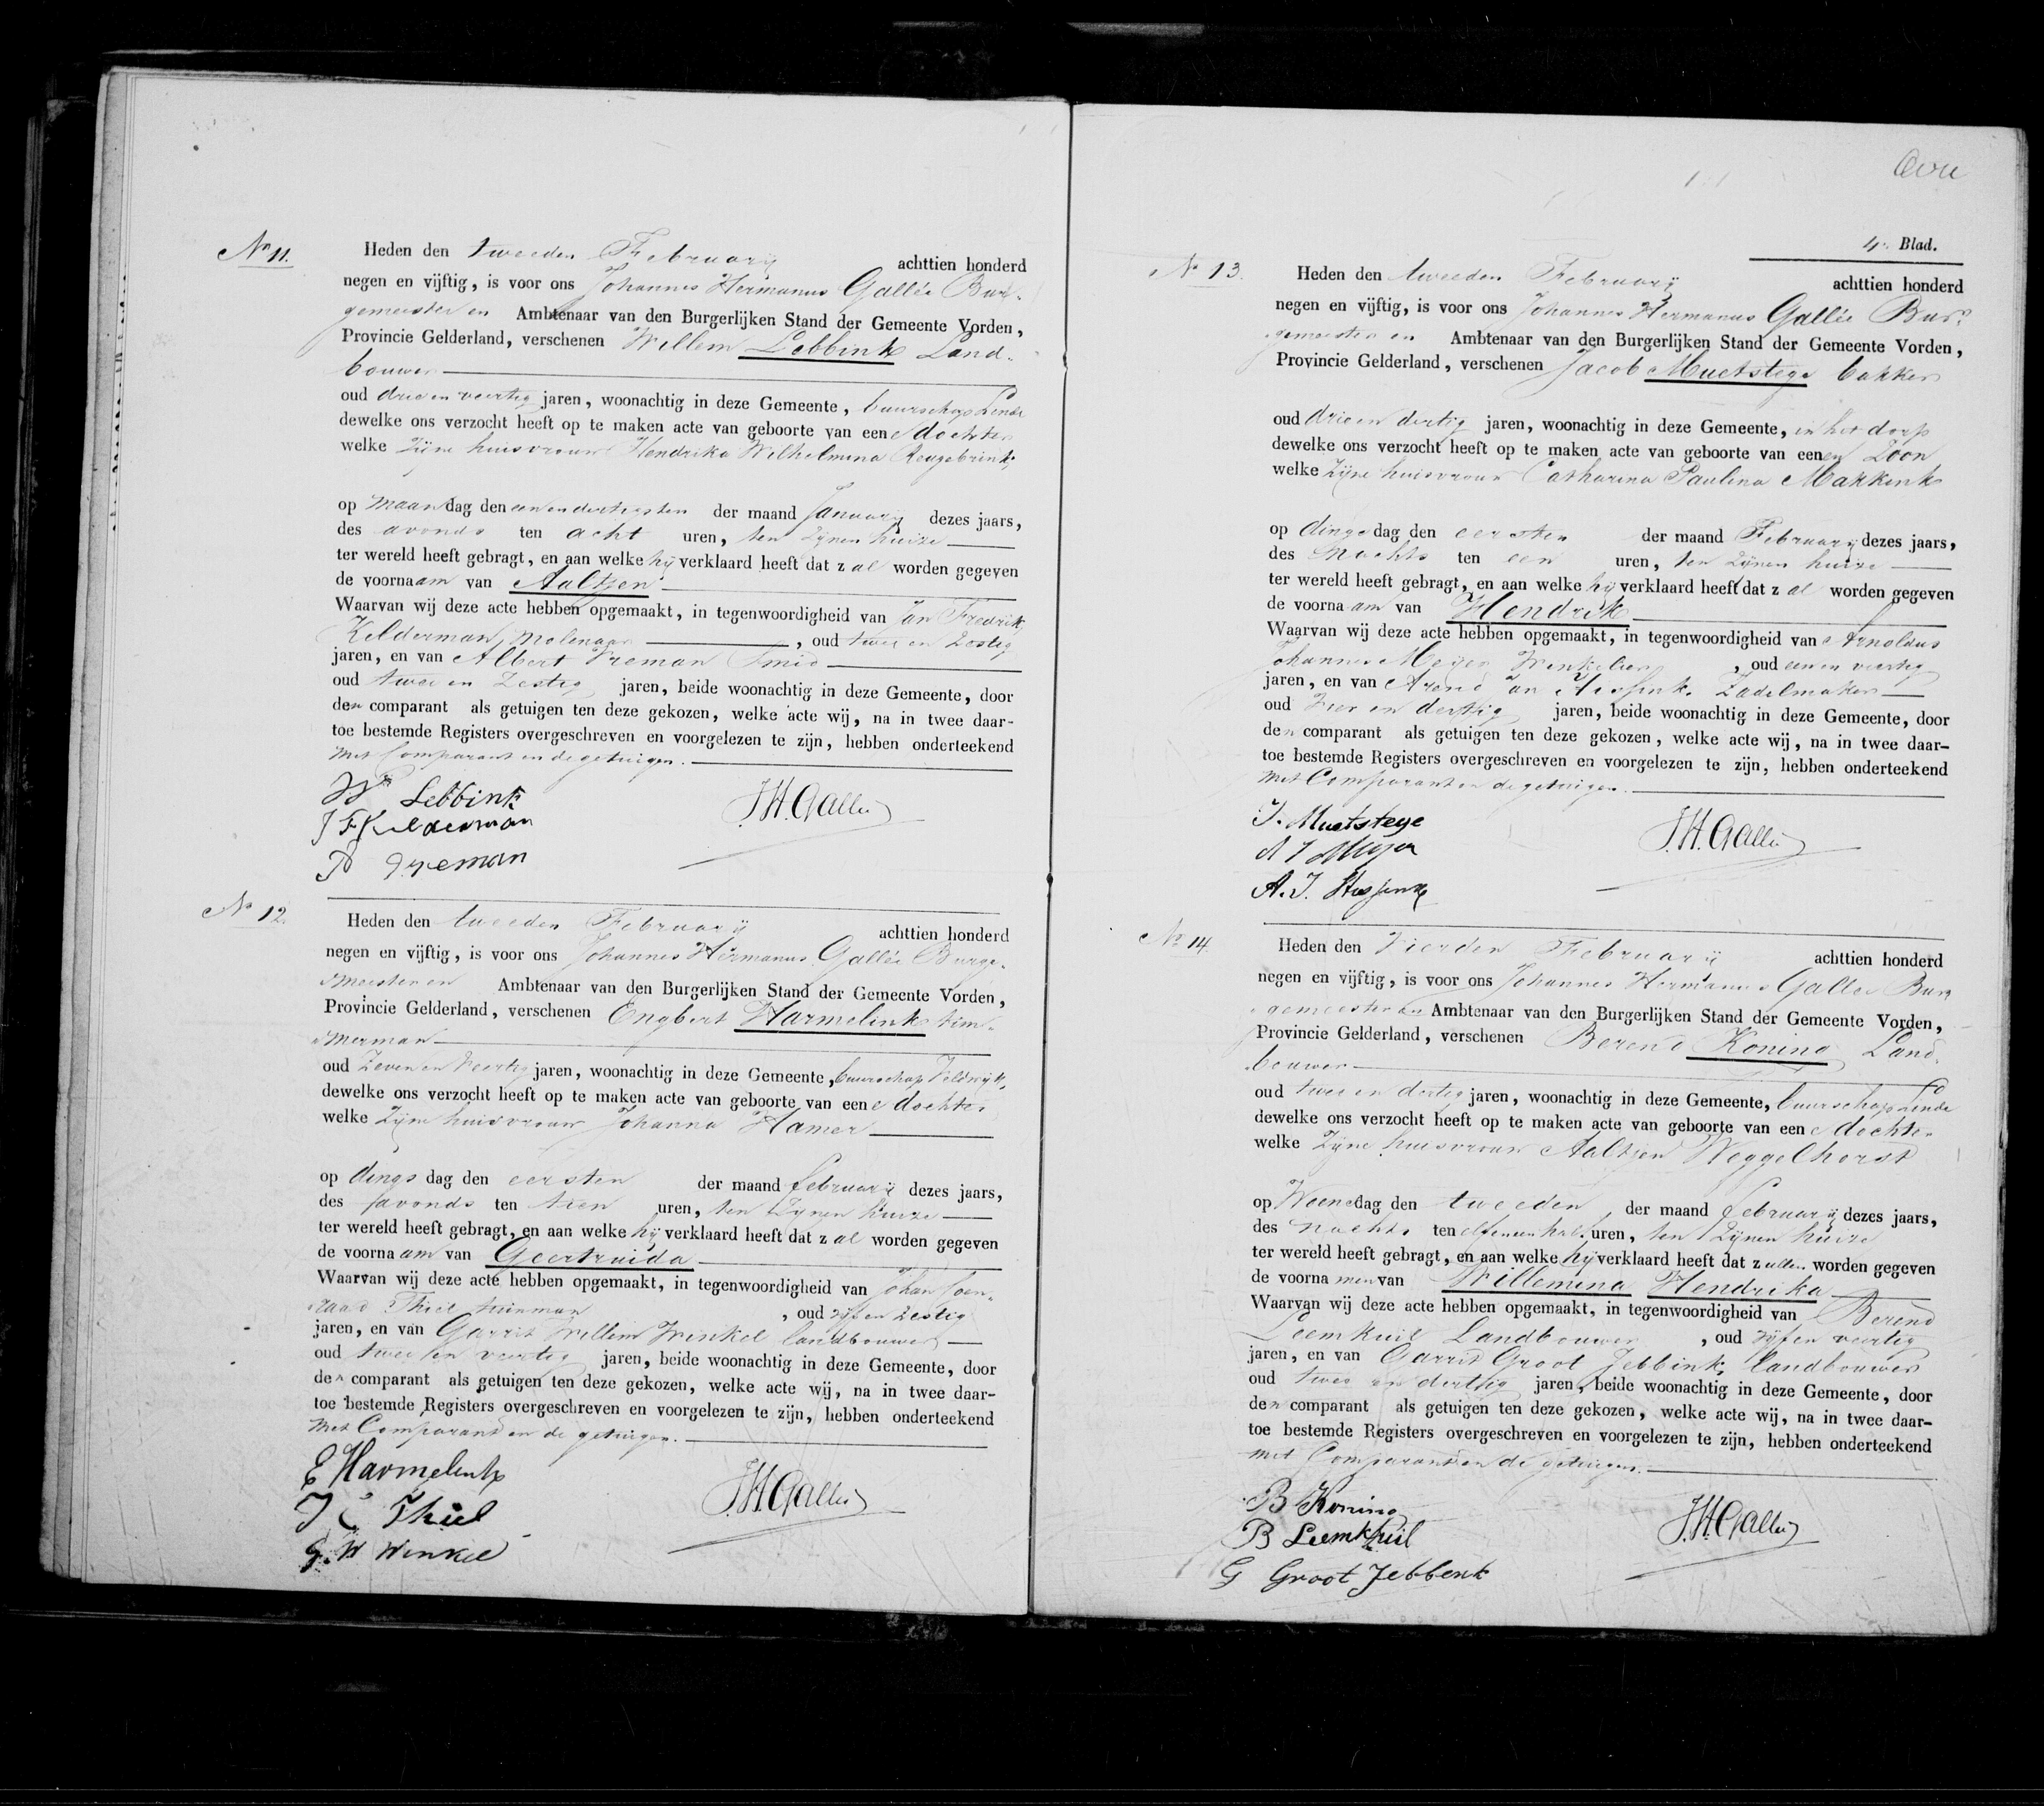 No 11.
Heden den tweeden Februarij achttien honderd
negen en vijftig, is voor ons Johannes Hermanus Gallée Bur-
gemeester en Ambtenaar van den Burgerlijken Stand der Gemeente Vorden,
Provincie Gelderland, verschenen Willem Lebbink Land-
bouwer
oud drie en veertig jaren, woonachtig in deze Gemeente, buurschap Linde
dewelke ons verzocht heeft op te maken acte van geboorte van eene dochter
welke zijne huisvrouw Hendrika Wilhelmina Regebrink
op maandag den een en dertigsten der maand Januarij dezes jaars,
des avonds ten acht uren, ten zijnen huize
ter wereld heeft gebragt, en aan welke hij verklaard heeft dat zal worden gegeven
de voornaam van Aaltjen
Waarvan wij deze acte hebben opgemaakt, in tegenwoordigheid van Jan Fredrik
Kelderman, molenaar, oud twee en zestig
jaren, en van Albert Vreman Smid
oud twee en zestig jaren, beide woonachtig in deze Gemeente, door
den comparant als getuigen ten deze gekozen, welke acte wij, na in twee daar-
toe bestemde Registers overgeschreven en voorgelezen te zijn, hebben onderteekend
met Comparant en de getuigen.
W Lebbink
J H Gallée
J F Kelderman
A Vreman
No 12.
Heden den tweeden Februarij achttien honderd
negen en vijftig, is voor ons Johannes Hermanus Gallée Burge-
meester en Ambtenaar van den Burgerlijken Stand der Gemeente Vorden,
Provincie Gelderland, verschenen Engbert Harmelink tim-
merman
oud zeven en veertig jaren, woonachtig in deze Gemeente, buurschap Veldwijk,
dewelke ons verzocht heeft op te maken acte van geboorte van eene dochter
welke zijne huisvrouw Johanna Hamer
op dingsdag den eersten der maand februarij dezes jaars,
des savonds ten tien uren, ten zijnen huize
ter wereld heeft gebragt, en aan welke hij verklaard heeft dat zal worden gegeven
de voornaam van Geertruida
Waarvan wij deze acte hebben opgemaakt, in tegenwoordigheid van Johan Coen-
raad Thiel tuinman, oud vijf en zestig
jaren, en van Garrit Willem Winkel landbouwer
oud twee en veertig jaren, beide woonachtig in deze Gemeente, door
den comparant als getuigen ten deze gekozen, welke acte wij, na in twee daar-
toe bestemde Registers overgeschreven en voorgelezen te zijn, hebben onderteekend
met Comparant en de getuigen.
E Harmelink
J H Gallée
J C Thiel
G. W Winkel
4e Blad.
No 13.
Heden den tweeden Februarij achttien honderd
negen en vijftig, is voor ons Johannes Hermanus Gallée Bur-
gemeester en Ambtenaar van den Burgerlijken Stand der Gemeente Vorden,
Provincie Gelderland, verschenen Jacob Muetstege bakker
oud drie en dertig jaren, woonachtig in deze Gemeente, in het dorp
dewelke ons verzocht heeft op te maken acte van geboorte van eenen Zoon
welke zijne huisvrouw Catharina Paulina Makkink
op dingsdag den eersten der maand Februarij dezes jaars,
des Nachts ten een uren, ten zijnen huize
ter wereld heeft gebragt, en aan welke hij verklaard heeft dat zal worden gegeven
de voornaam van Hendrik
Waarvan wij deze acte hebben opgemaakt, in tegenwoordigheid van Arnoldus
Johannes Meijer Winkelier, oud een en veertig
jaren, en van Arend Jan Hesselink Zadelmaker
oud vier en dertig jaren, beide woonachtig in deze Gemeente, door
den comparant als getuigen ten deze gekozen, welke acte wij, na in twee daar-
toe bestemde Registers overgeschreven en voorgelezen te zijn, hebben onderteekend
met Comparant en de getuigen.
J. Muetstege
J. H. Gallée
A J Meijer
A. J.
No 14.
Heden den Vierden Februarij achttien honderd
negen en vijftig, is voor ons Johannes Hermanus Gallée Bur-
gemeester en Ambtenaar van den Burgerlijken Stand der Gemeente Vorden,
Provincie Gelderland, verschenen Berend Koning Land-
bouwer
oud twee en dertig jaren, woonachtig in deze Gemeente, buurschap Linde
dewelke ons verzocht heeft op te maken acte van geboorte van eene dochter
welke zijne huisvrouw Aaltjen Weggelhorst
op Woensdag den tweeden der maand februarij dezes jaars,
des nachts ten elf en een half uren, ten zijnen huize
ter wereld heeft gebragt, en aan welke hij verklaard heeft dat zullen worden gegeven
de voornamen van Willemina Hendrika
Waarvan wij deze acte hebben opgemaakt, in tegenwoordigheid van Berend
Leemkuil Landbouwer, oud vijf en veertig
jaren, en van Garrit Groot Jebbink, landbouwer
oud twee en dertig jaren, beide woonachtig in deze Gemeente, door
den comparant als getuigen ten deze gekozen, welke acte wij, na in twee daar-
toe bestemde Registers overgeschreven en voorgelezen te zijn, hebben onderteekend
met Comparant en de getuigen.
B Koning
J. H. Gallée
B Leemkuil
G Groot Jebbenk